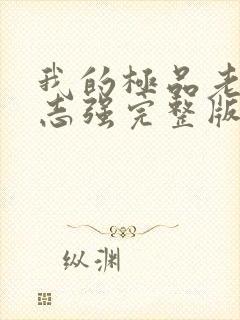 我的極品老
志强完整版
纵渊